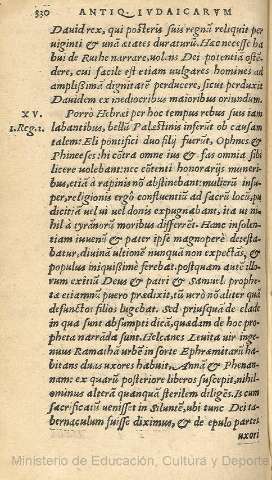 530 ANTIQ. IVDAICARVM
Dauid rex, qui posteris suis regnũ reliquit per
viginti & unã ætates duraturũ. Hæc necesse ha
bui de Ruthe narrare, uolẽns Dei potentiã ostẽ
dere, cui facile est etiam uulgares homines ad
amplissimã dignitatẽ perducere, sicut perduxit
Dauidem ex mediocribus maioribus oriundum.
XV. Porrò Hebræi per hoc tempus rebus suis iam
1.Reg.1. labantibus, bellũ Palæstinis inferũt ob causam
talem: Eli pontifici duo filij fuerũt, Ophnes &
Phineeses: hi cõtra omne ius & fas omnia sibi
licere uolebant: nec cõtenti honorarijs muneri-
bus, etiã à rapinis nõ abstinebant: mulierũ insu-
per, religionis ergò confluentiũ ad sacrũ locũ, pu
dicitiã uel ui uel donis expugnabant, ita ut ni-
hil à tyrãnorũ moribus differrẽt. Hanc insolen-
tiam iuuenũ & pater ipse magnoperè detesta-
batur, diuinã ultionẽ nunquã non expectãs, &
populus iniquissimè ferebat. postquam autẽ illo-
rum exitiũ Deus & patri & Samueli prophe-
tæ etiamnũ puero prædixit, tũ uerò nõ aliter quã
defunctos filios lugebat. Sed priusquã de clade
in qua sunt absumpti dicã, quædam de hoc pro-
pheta narrãda sunt. Helcanes Leuita uir inge-
nuus Ramatha urbẽ in sorte Ephræmitarũ habi-
tans duas uxores habuit, Annã & Phenan-
nam: ex quarũ posteriore liberos suscepit, nihil-
ominus alterã quanquã sterilem diligẽs. Is cum
sacrificatũ uenisset in Siluntẽ, ubi tunc Dei ta-
bernaculum fuisse diximus, & de epulo partes
uxori
Ministerio de Educación, Cultura y Deporte